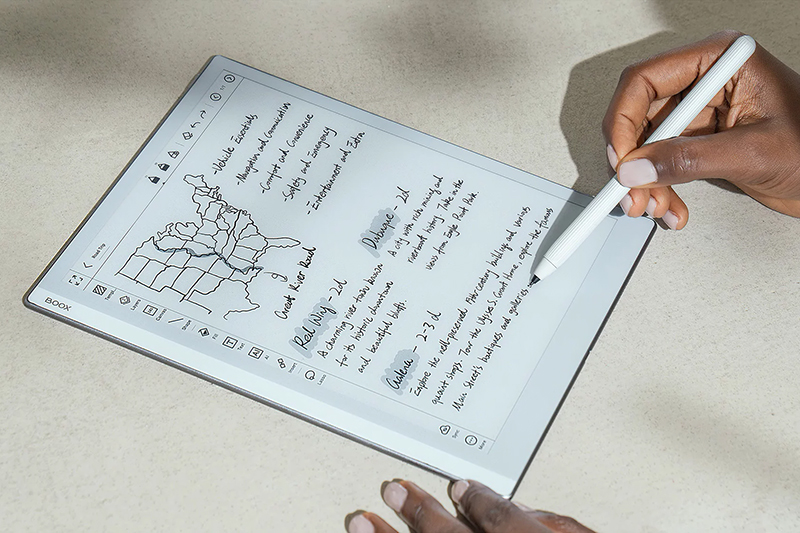 BOOX
Road Trip
1/1
Template
Layers
Convert
Shape
Fill
Text
AI
Insert
Lasso
Sync
More
-Vehicle Essentials
-Navigation and Communication
-Comfort and Convenience
-Safety and Emergency
-Entertainment and Extra
Great River Road
Red Wing - 2d
A charming river town known
for its historic downtown
and beautiful bluffs
Dubuque - 2d
A city with rich mining and
riverboat history. Take in the
views from Eagle Point Park.
Galena - 2-3 d
Explore the well-preserved 19th-century buildings and various
quaint shops. Tour the Ulysses S. Grant Home, explore the famous
Main Street's boutiques and galleries